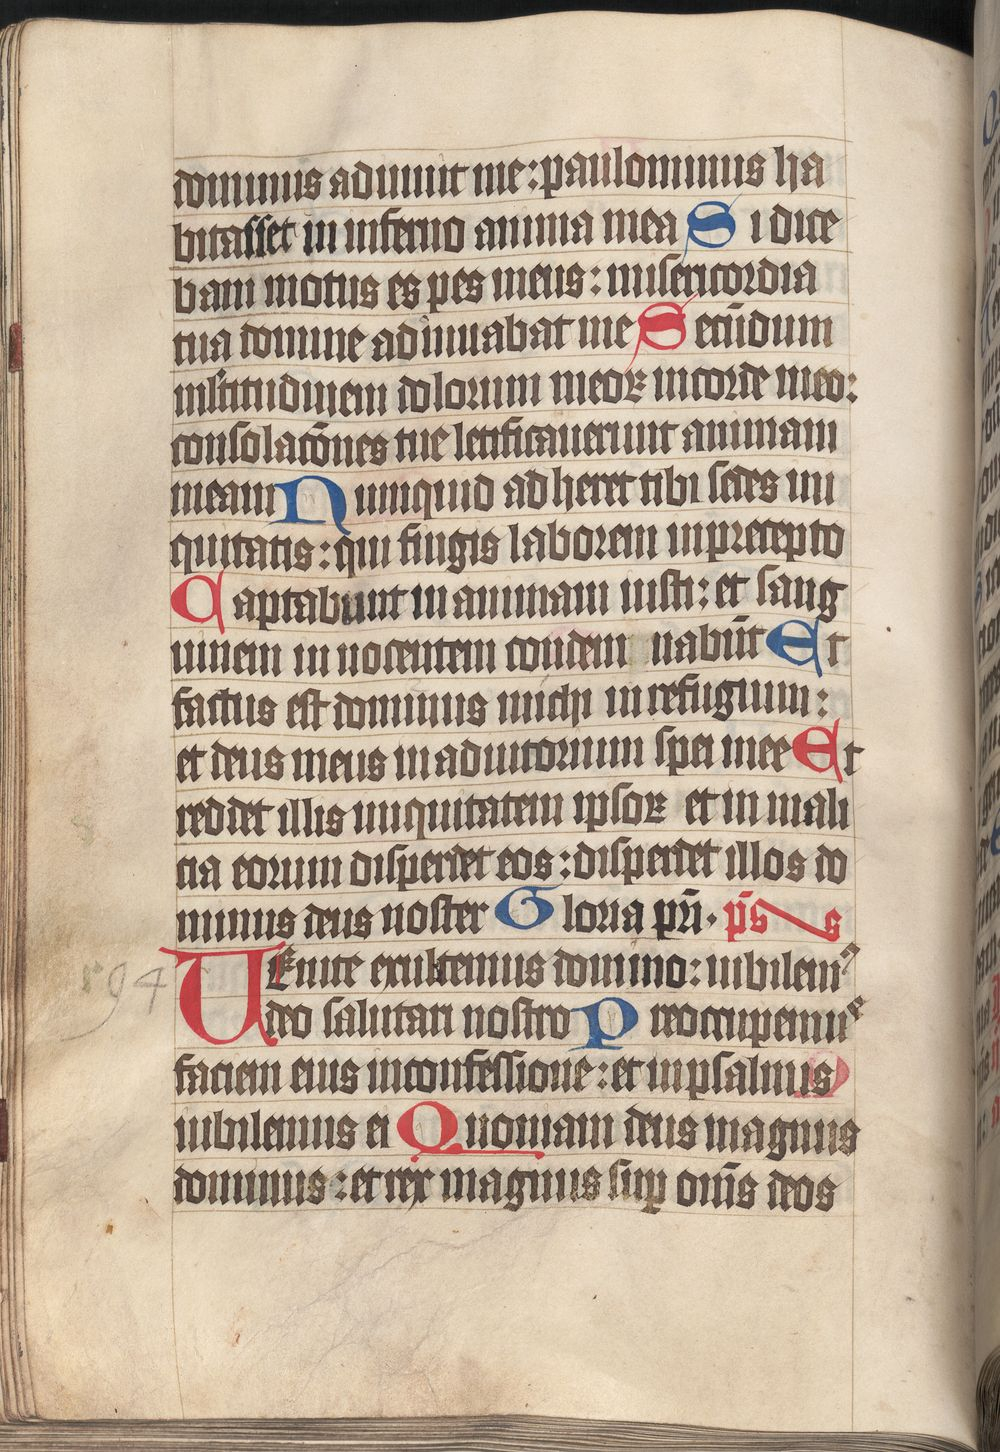 dominus adiuuit me: paulominus ha
bitasset in inferno anima mea Si dice
bam motus es pes meus: misericordia
tua domine adiuuabat me Secūdum
mltitudinem dolorum meoꝝ in corde meo:
consolacōnes tue letificauerunt animam
meam Nunquid adheret tibi sedes ini
quitatis: qui fingis laborem in precepto
Captabunt in animam iusti: et sang
uinem innocentem condem nabūt Et
factus est dominus michi in refugium:
et deus meus in adiutorium spei mee Et
reddet illis iniquitatem ipsoꝝ et in mali
cia eorum disperdet eos: disperdet illos do
minus deus noster Gloria pr̄i. p̄s s
VEnite exultemus domino: iubilemꝰ
deo salutari nostro Preoccupemuꝰ
faciem eius in confessione: et in psalmis
iubilemus ei Quoniam deus magnus
dominus: et rex magnus suꝑ om̄s deos
594